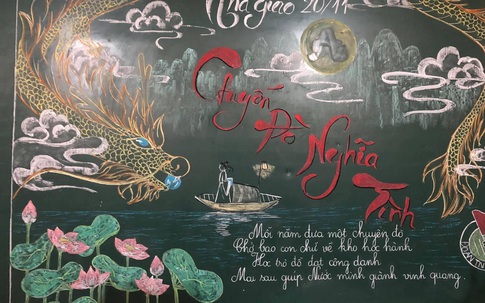 Nhà giáo 20/11
A
Chuyến
Đò
Nghĩa
Tình
Mỗi năm đưa một chuyến đò
Chở bao con chữ về kho học hành
Học trò đỗ đạt công danh
Mai sau giúp Nước mình giành vinh quang.